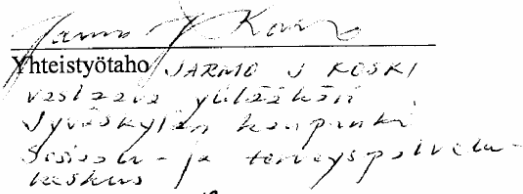 Jarmo J Koski
Yhteistyötaho JARMO J KOSKI
vastaava ylilääkäri
Jyväskylän kaupunki
Sosiaali- ja terveyspalvelu-
keskus